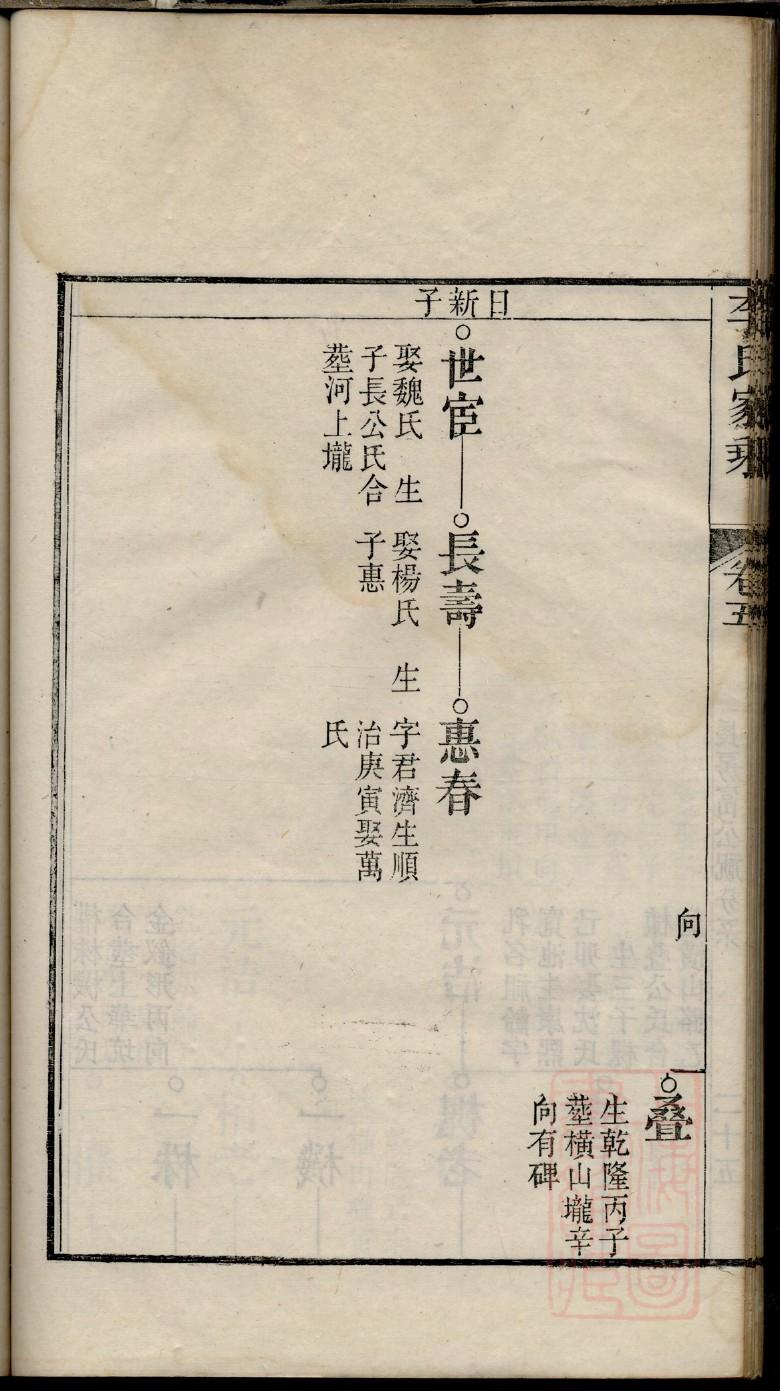 李氏家乘
卷五
向
叠
生乾隆丙子
塟橫山壠辛
向有碑
日新子
世宦
娶魏氏　生
子長公氏合
塟河上壠
長壽
娶楊氏　生
子惠
惠春
字君濟生順
治庚寅娶萬
氏